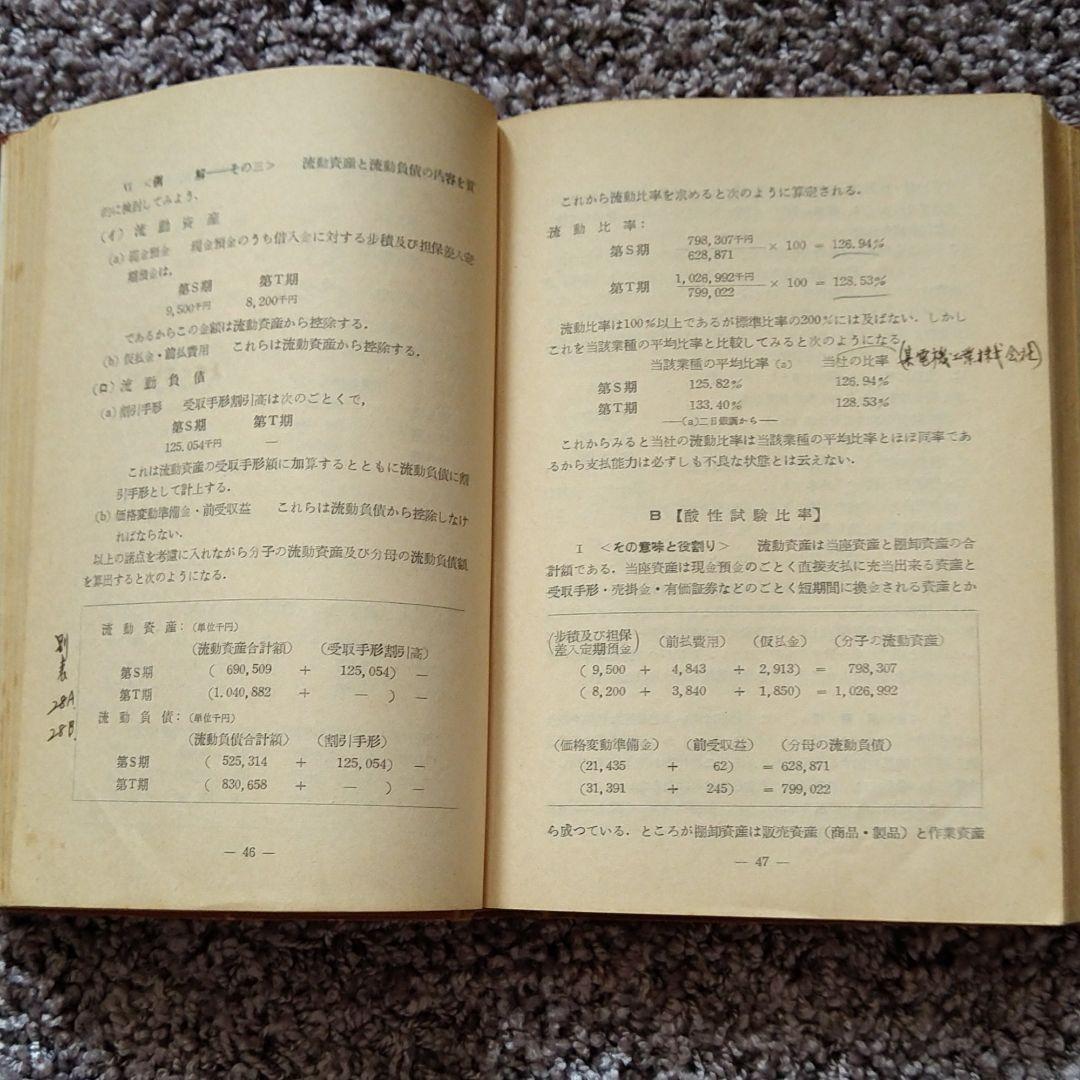 Ⅵ <例　　解——その三>　　流動資産と流動負債の内容を質
的に検討してみよう、
(イ) 流　動　資　産
(a) 現金預金　現金預金のうち借入金に対する歩積及び担保差入定
期預金は,
第S期　　第T期
9,500千円　　8,200千円
であるからこの金額は流動資産から控除する.
(b) 仮払金・前払費用　　これらは流動資産から控除する.
(ロ) 流　動　負　債
(a) 割引手形　受取手形割引高は次のごとくで,
第S期　　第T期
125.054千円　　—
これは流動資産の受取手形額に加算するとともに流動負債に割
引手形として計上する.
(b) 価格変動準備金・前受収益　　これらは流動負債から控除しなけ
ればならない.
以上の諸点を考慮に入れながら分子の流動資産及び分母の流動負債額
を算出すると次のようになる.
流　動　資　産：(単位千円)
(流動資産合計額)　　(受取手形割引高)
第S期　　( 690,509　＋　125,054)　—
第T期　　(1.040,882　＋　—　)　—
流　動　負　債：(単位千円)
(流動負債合計額)　　(割引手形)
第S期　　( 525,314　＋　125,054)　—
第T期　　( 830,658　＋　—　)　—
別表
28A
28B
— 46 —
これから流動比率を求めると次のように算定される.
流　動　比　率：
第S期　　798,307千円 / 628,871 × 100 = 126.94%
第T期　　1,026,992千円 / 799,022 × 100 = 128.53%
流動比率は100%以上であるが標準比率の200%には及ばない. しかし
これを当該業種の平均比率と比較してみると次のようになる
当該業種の平均比率(a)　　当社の比率 (某電機工業株式会社)
第S期　　125.82%　　126.94%
第T期　　133.40%　　128.53%
——(a)二日銀調から——
これからみると当社の流動比率は当該業種の平均比率とほぼ同率であ
るから支払能力は必ずしも不良な状態とは云えない.
B【酸性試験比率】
Ⅰ <その意味と役割り>　　流動資産は当座資産と棚卸資産の合
計額である. 当座資産は現金預金のごとく直接支払に充当出来る資産と
受取手形・売掛金・有価証券などのごとく短期間に換金される資産とか
(歩積及び担保差入定期預金)　(前払費用)　(仮払金)　(分子の流動資産)
( 9,500 ＋ 4,843 ＋ 2,913) = 798,307
( 8,200 ＋ 3,840 ＋ 1,850) = 1,026,992
(価格変動準備金)　(前受収益)　(分母の流動負債)
(21,435 ＋ 62) = 628,871
(31,391 ＋ 245) = 799,022
ら成つている. ところが棚卸資産は販売資産 (商品・製品) と作業資産
— 47 —